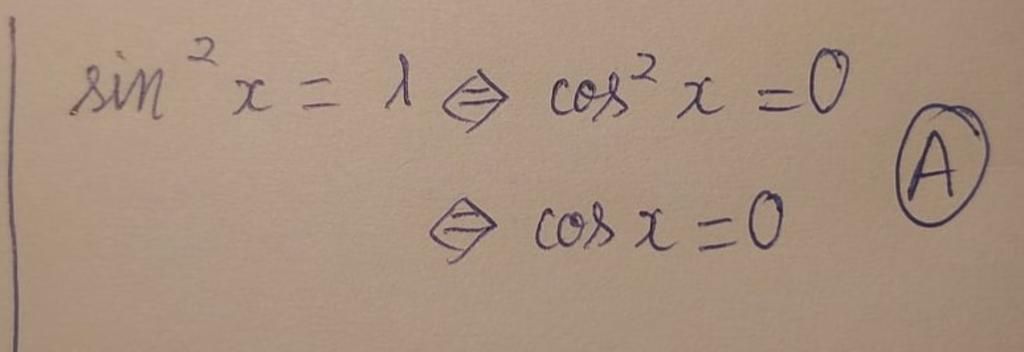 sin²x = 1 ⇔ cos²x = 0
⇔ cos x = 0
A